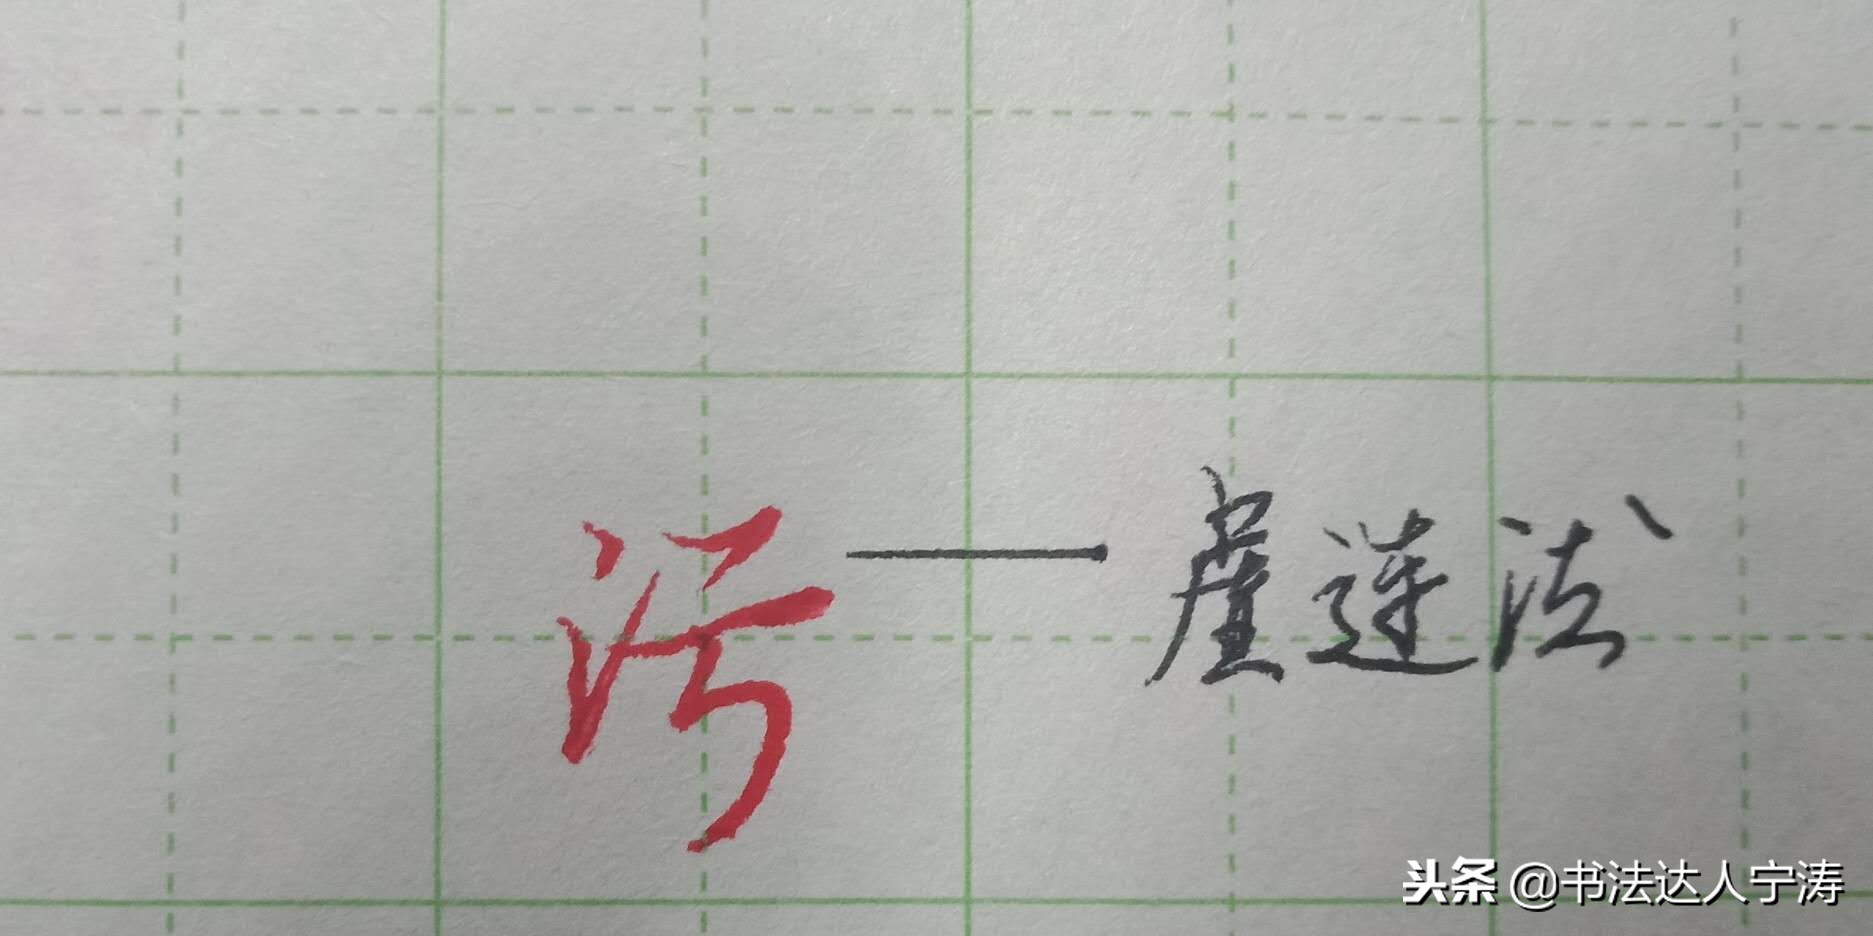 污 — 虚连法
头条 @书法达人宁涛